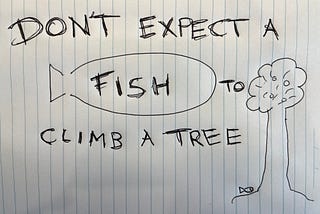 DON'T EXPECT A
FISH TO
CLIMB A TREE